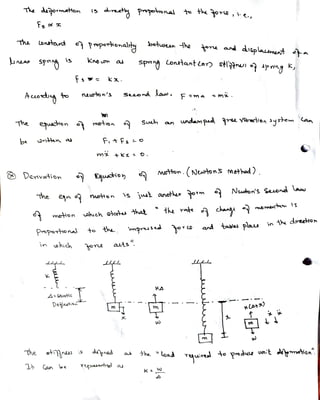 The deformation is directly proportional to the force, i.e.,
Fs ∝ x
The constant of proportionality between the force and displacement of a
linear spring is known as spring constant (or) stiffness of spring K,
Fs = kx.
According to newton's second law, F = ma = mẍ.
The equation of motion of such an undamped free vibration system can
be written as F1 + F2 = 0
mẍ + kx = 0.
Derivation of Equation of motion. (Newton's method).
The eqn of motion is just another form of Newton's second law
of motion which states that "the rate of change of momentum is
proportional to the impressed force and takes place in the direction
in which force acts".
K
Δ = static
Deflection
m
x
KΔ
m
W
x
m
K(Δ+x)
m
ẋ ẍ
W
The stiffness is defined as the "load required to produce unit deformation"
It can be represented as K = W/Δ